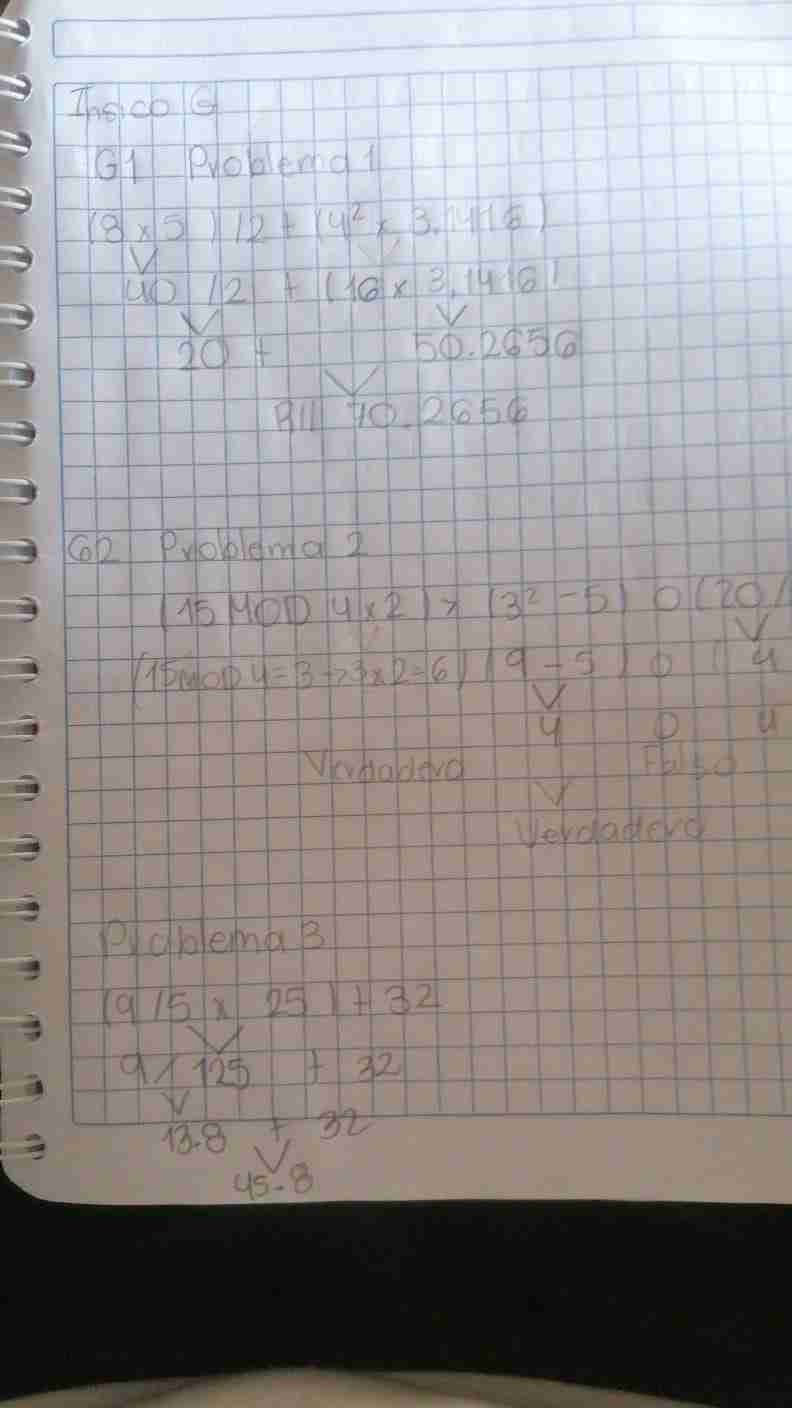 Insico G
G1 Problema 1
(8 x 5) / 2 + (4² x 3.1416)
40 / 2 + (16 x 3.1416)
20 + 50.2656
R// 70.2656
G2 Problema 2
(15 MOD 4 x 2) > (3² - 5) O (20 /
(15 MOD 4 = 3 -> 3 x 2 = 6) (9 - 5) O ( 4
4 O 4
Verdadero Falso
Verdadero
Problema 3
(9 / 5 x 25) + 32
9 / 125 + 32
13.8 + 32
45.8